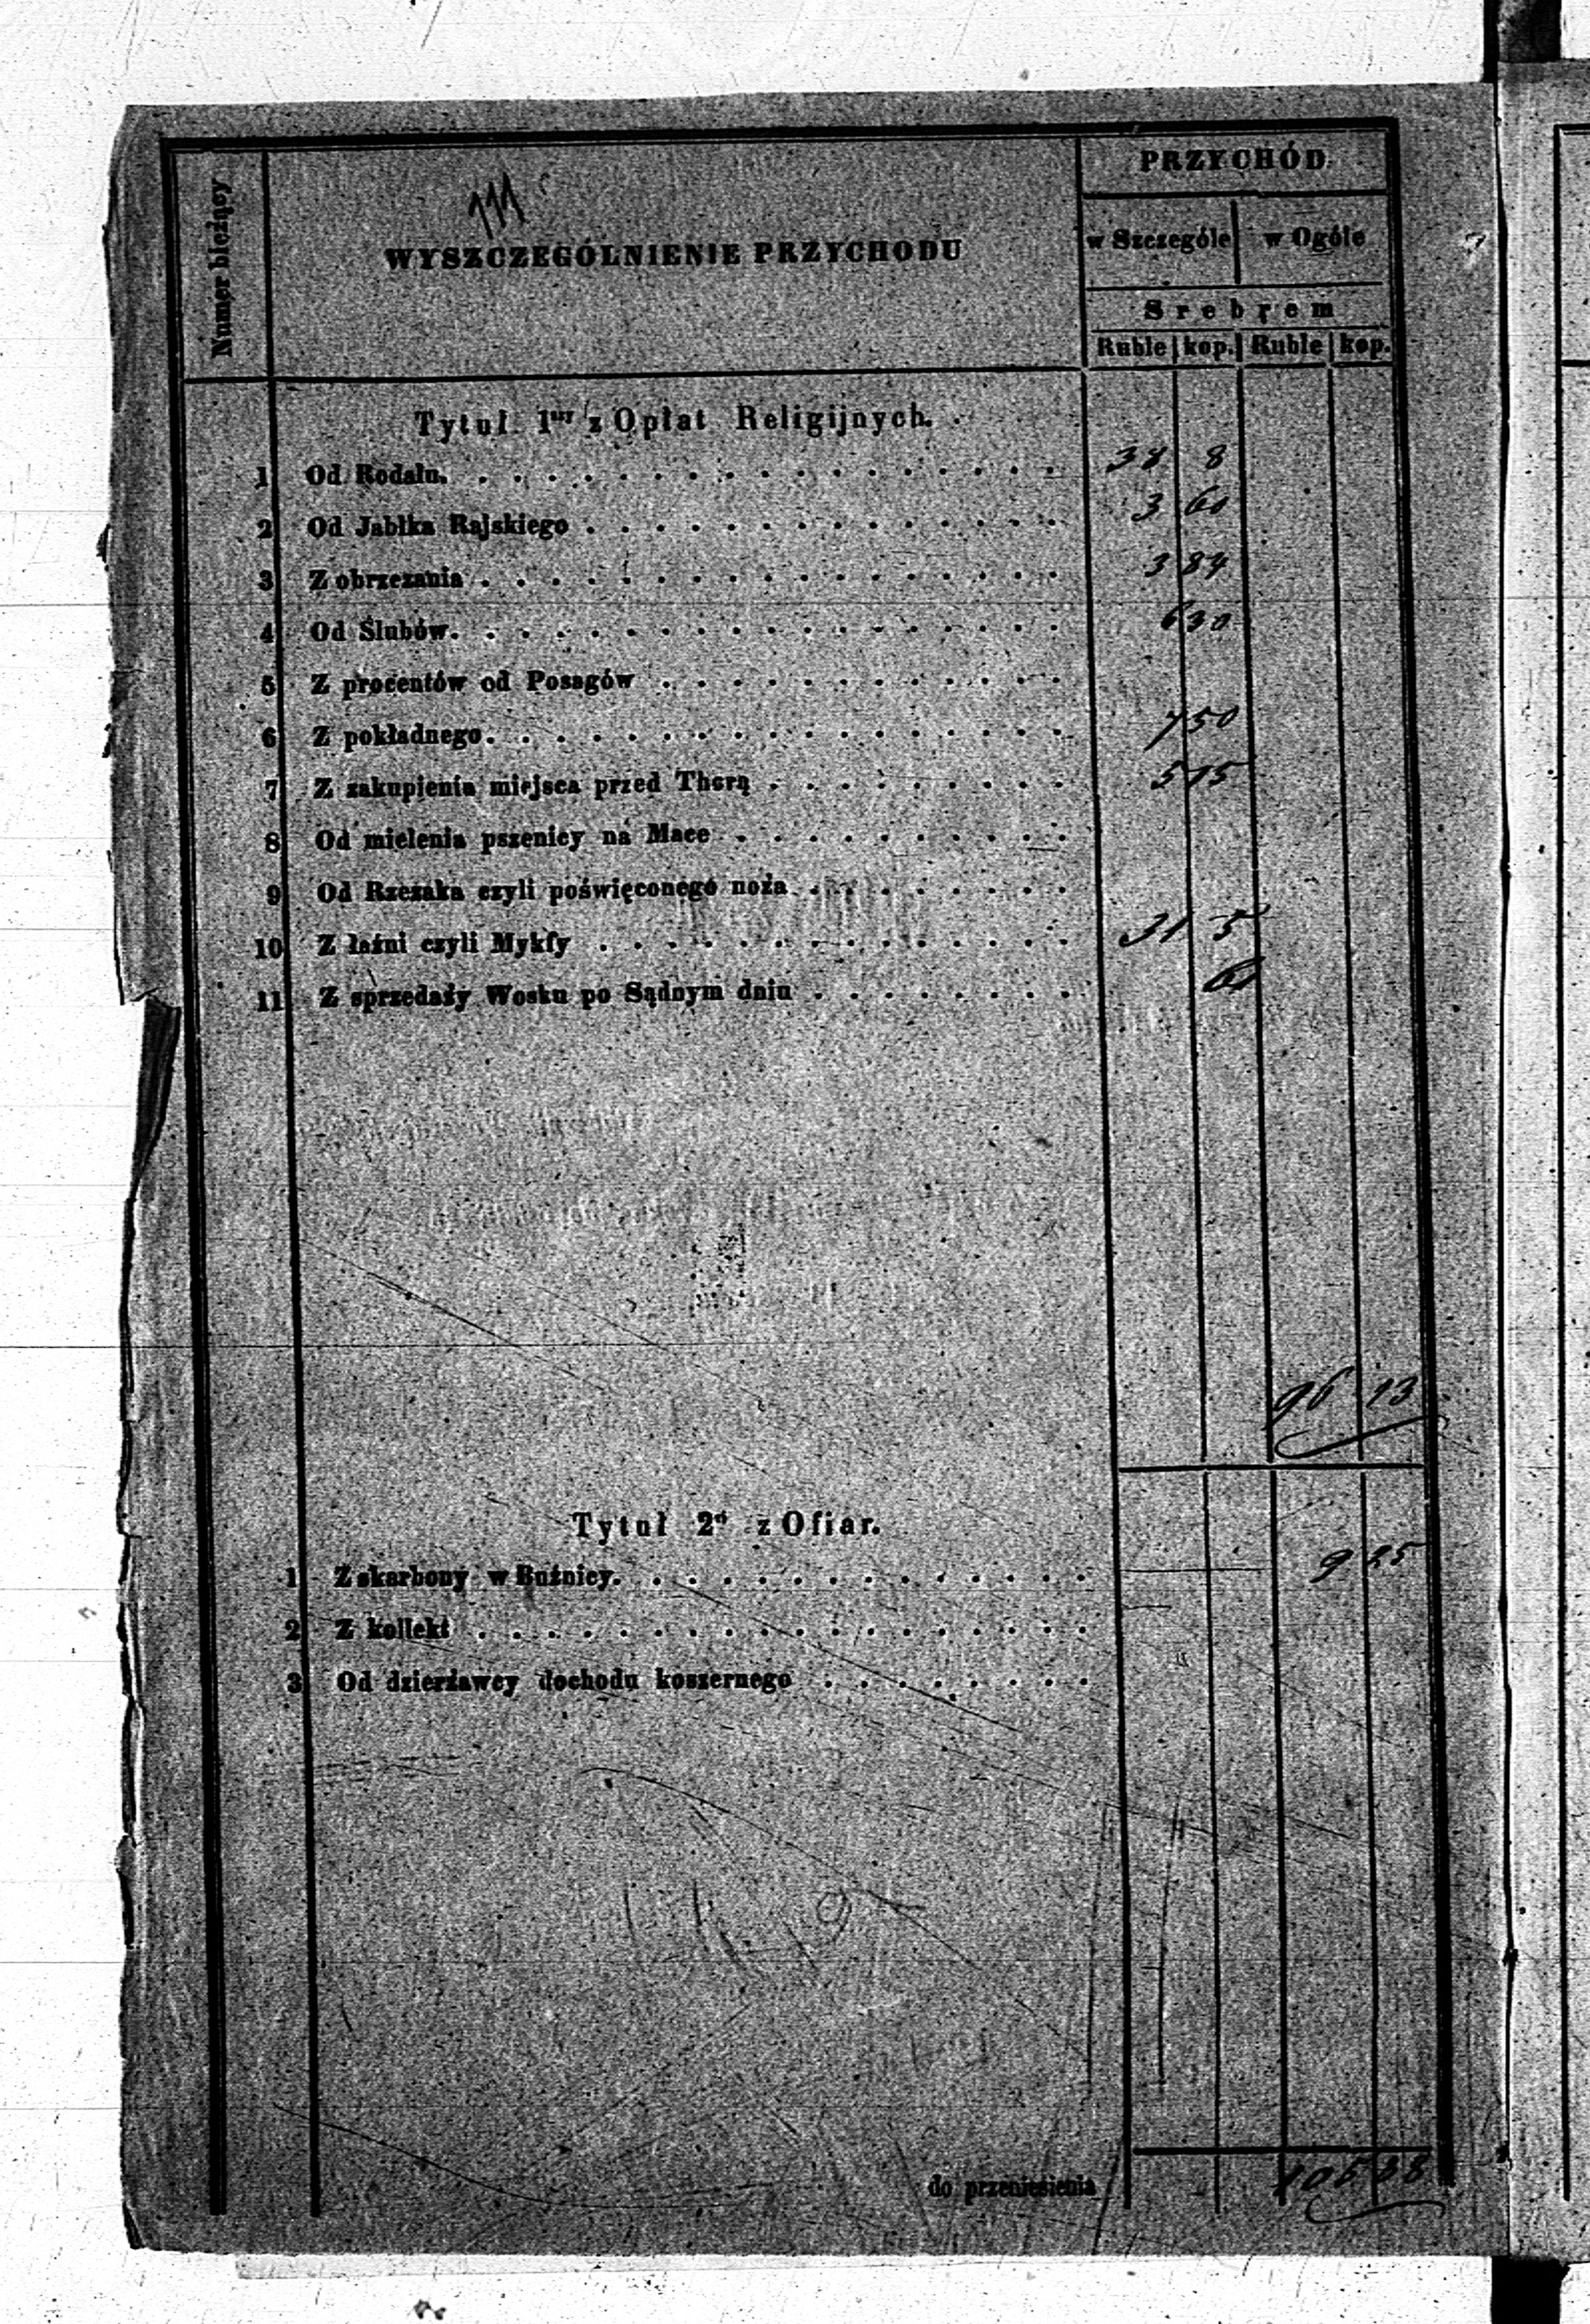 111
Numer bieżący
WYSZCZEGÓLNIENIE PRZYCHODU
PRZYCHÓD
w Szczególe w Ogóle
Srebrem
Ruble kop. Ruble kop.
Tytuł 1ny z Opłat Religijnych.
1 Od Rodału. 38 8
2 Od Jabłka Rajskiego 3 60
3 Z obrzezania 3 84
4 Od Ślubów. 6 30
5 Z procentów od Posagów
6 Z pokładnego. 7 50
7 Z zakupienia miejsca przed Thorą 5 15
8 Od mielenia pszenicy na Mace
9 Od Rzezaka czyli poświęconego noża
10 Z łaźni czyli Mykfy 31 5
11 Z sprzedaży Wosku po Sądnym dniu 60
96 13
Tytuł 2gi z Ofiar.
1 Z skarbony w Buźnicy. 9 25
2 Z kollekt
3 Od dzierżawcy dochodu koszernego
do przeniesienia 105 38